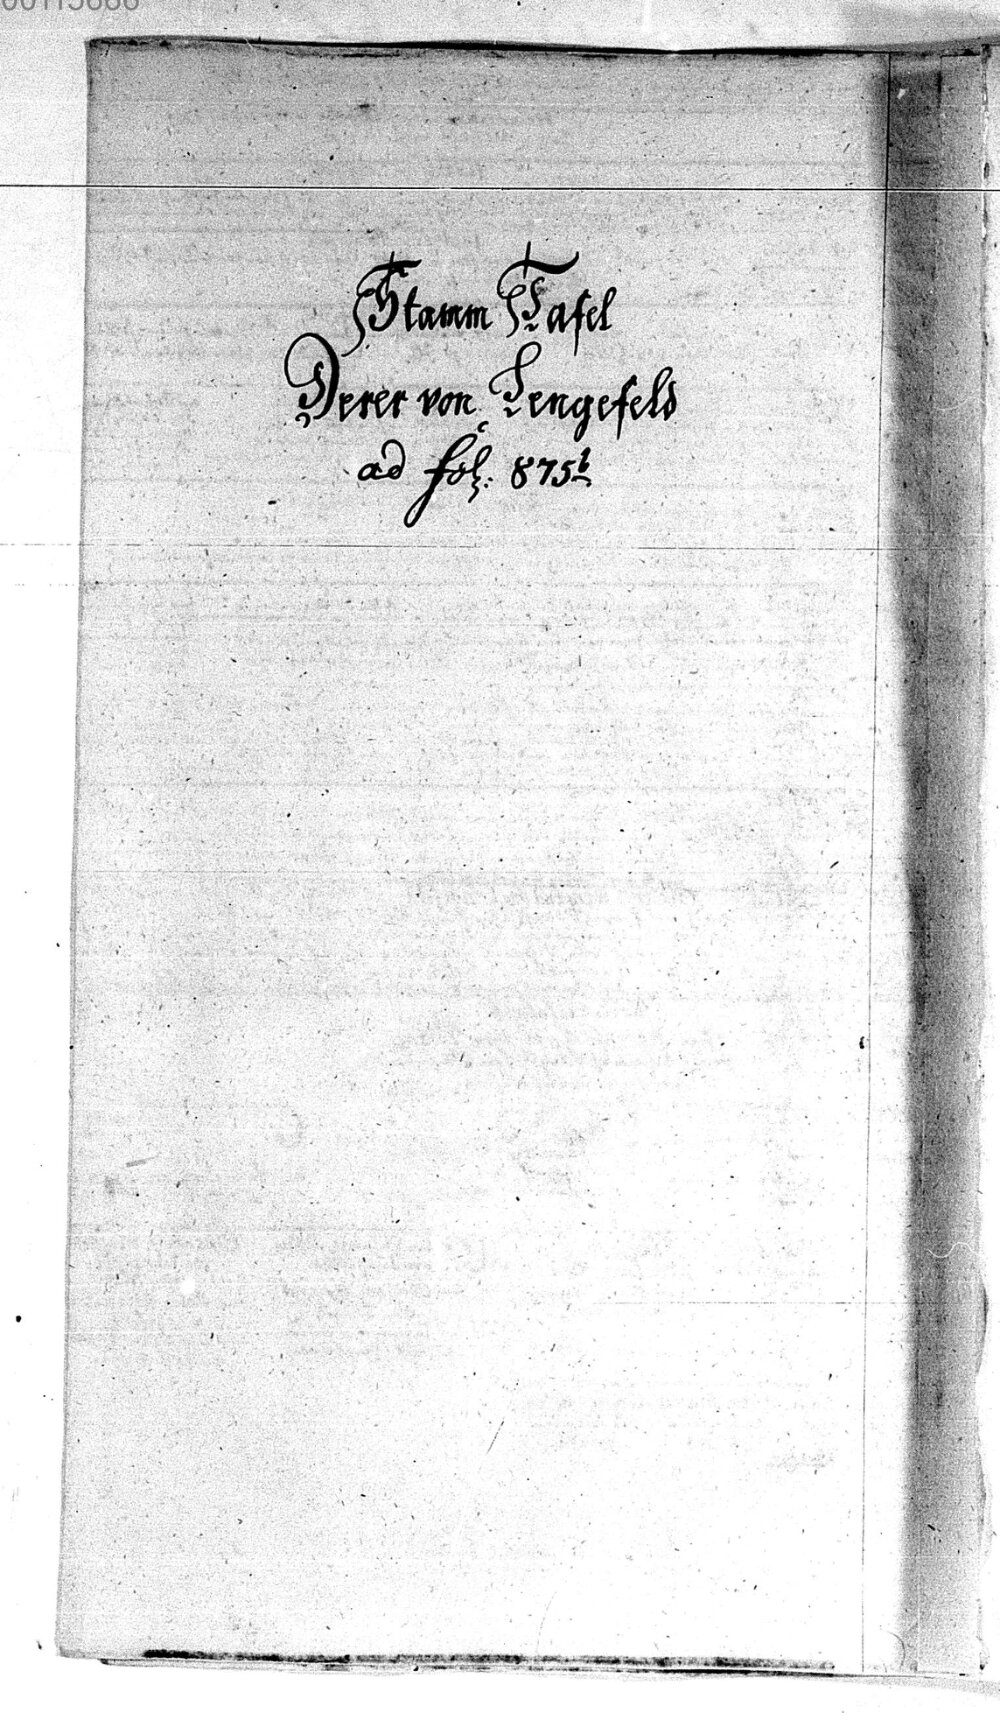 00115886
Stamm Tafel
Derer von Lengefeld
ad fol: 875b